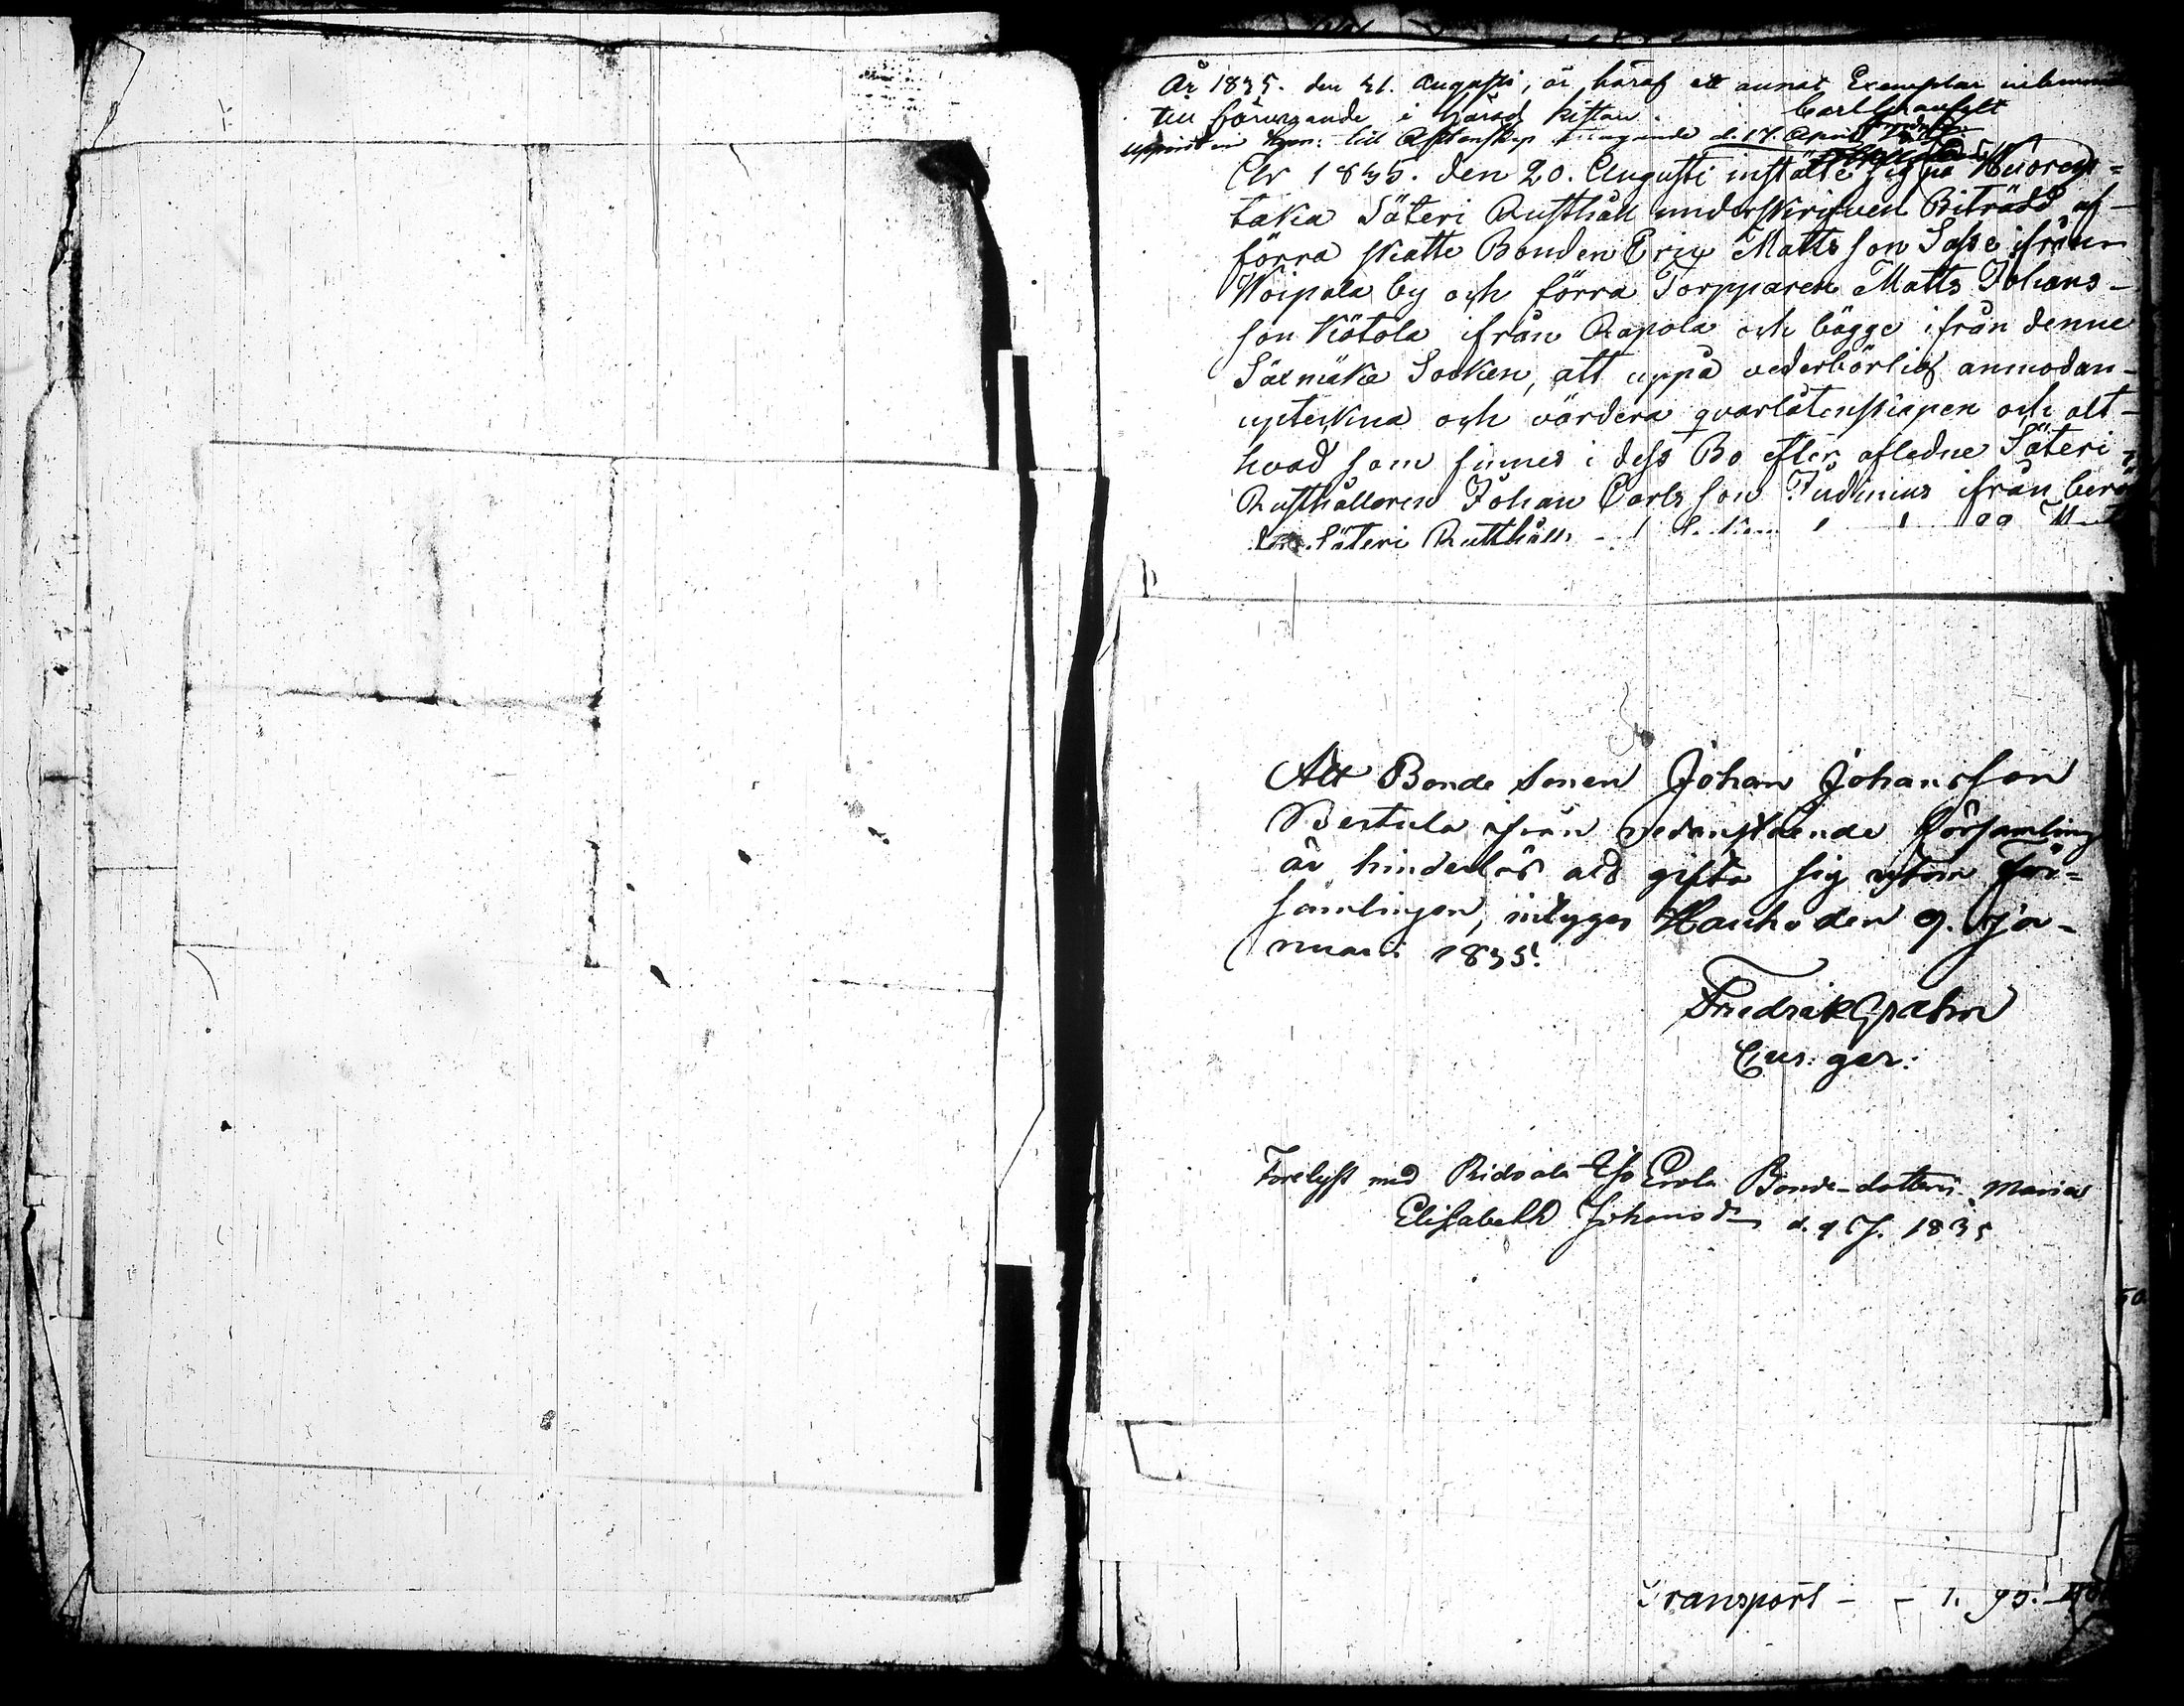 År 1835. den 21. Augusti, är häraf ett annat Exemplar inlemnat
till förvarande i Härads kistan.
d. 17. April
År 1835. den 20. Augusti instälte sig på Wuoren-
taka Säteri Rusthåll underskrifven Biträdd af
förra skatte Bonden Eric Mattsson Sasse ifrån
Woipala by och förra Torpparen Matts Johans-
son Kötola ifrån Rapola och bägge ifrån denne
Säxmäke Socken, att uppå vederbörlig anmodan-
upteckna och värdera qvarlåtenskapen och alt-
hvad som finnes i dess Bo efter afledne Säteri-
Rusthållaren Johan Carlsson Judinius ifrån berör
Säteri Rusthåll
Att Bonde Sonen Johan Johansson
Bertula ifrån nedanstående Församling
är hinderlös att gifta sig utom För-
samlingen, intygas Hauho den 9. Ja-
nuari 1835.
Fredrik Gpahn
Cur. ger:
Forelyst med Ridvala Iso Erola Bonde-dottern Maria
Elisabeth Johansdr d. 9 J. 1835
50
Transport - - 1. 95.